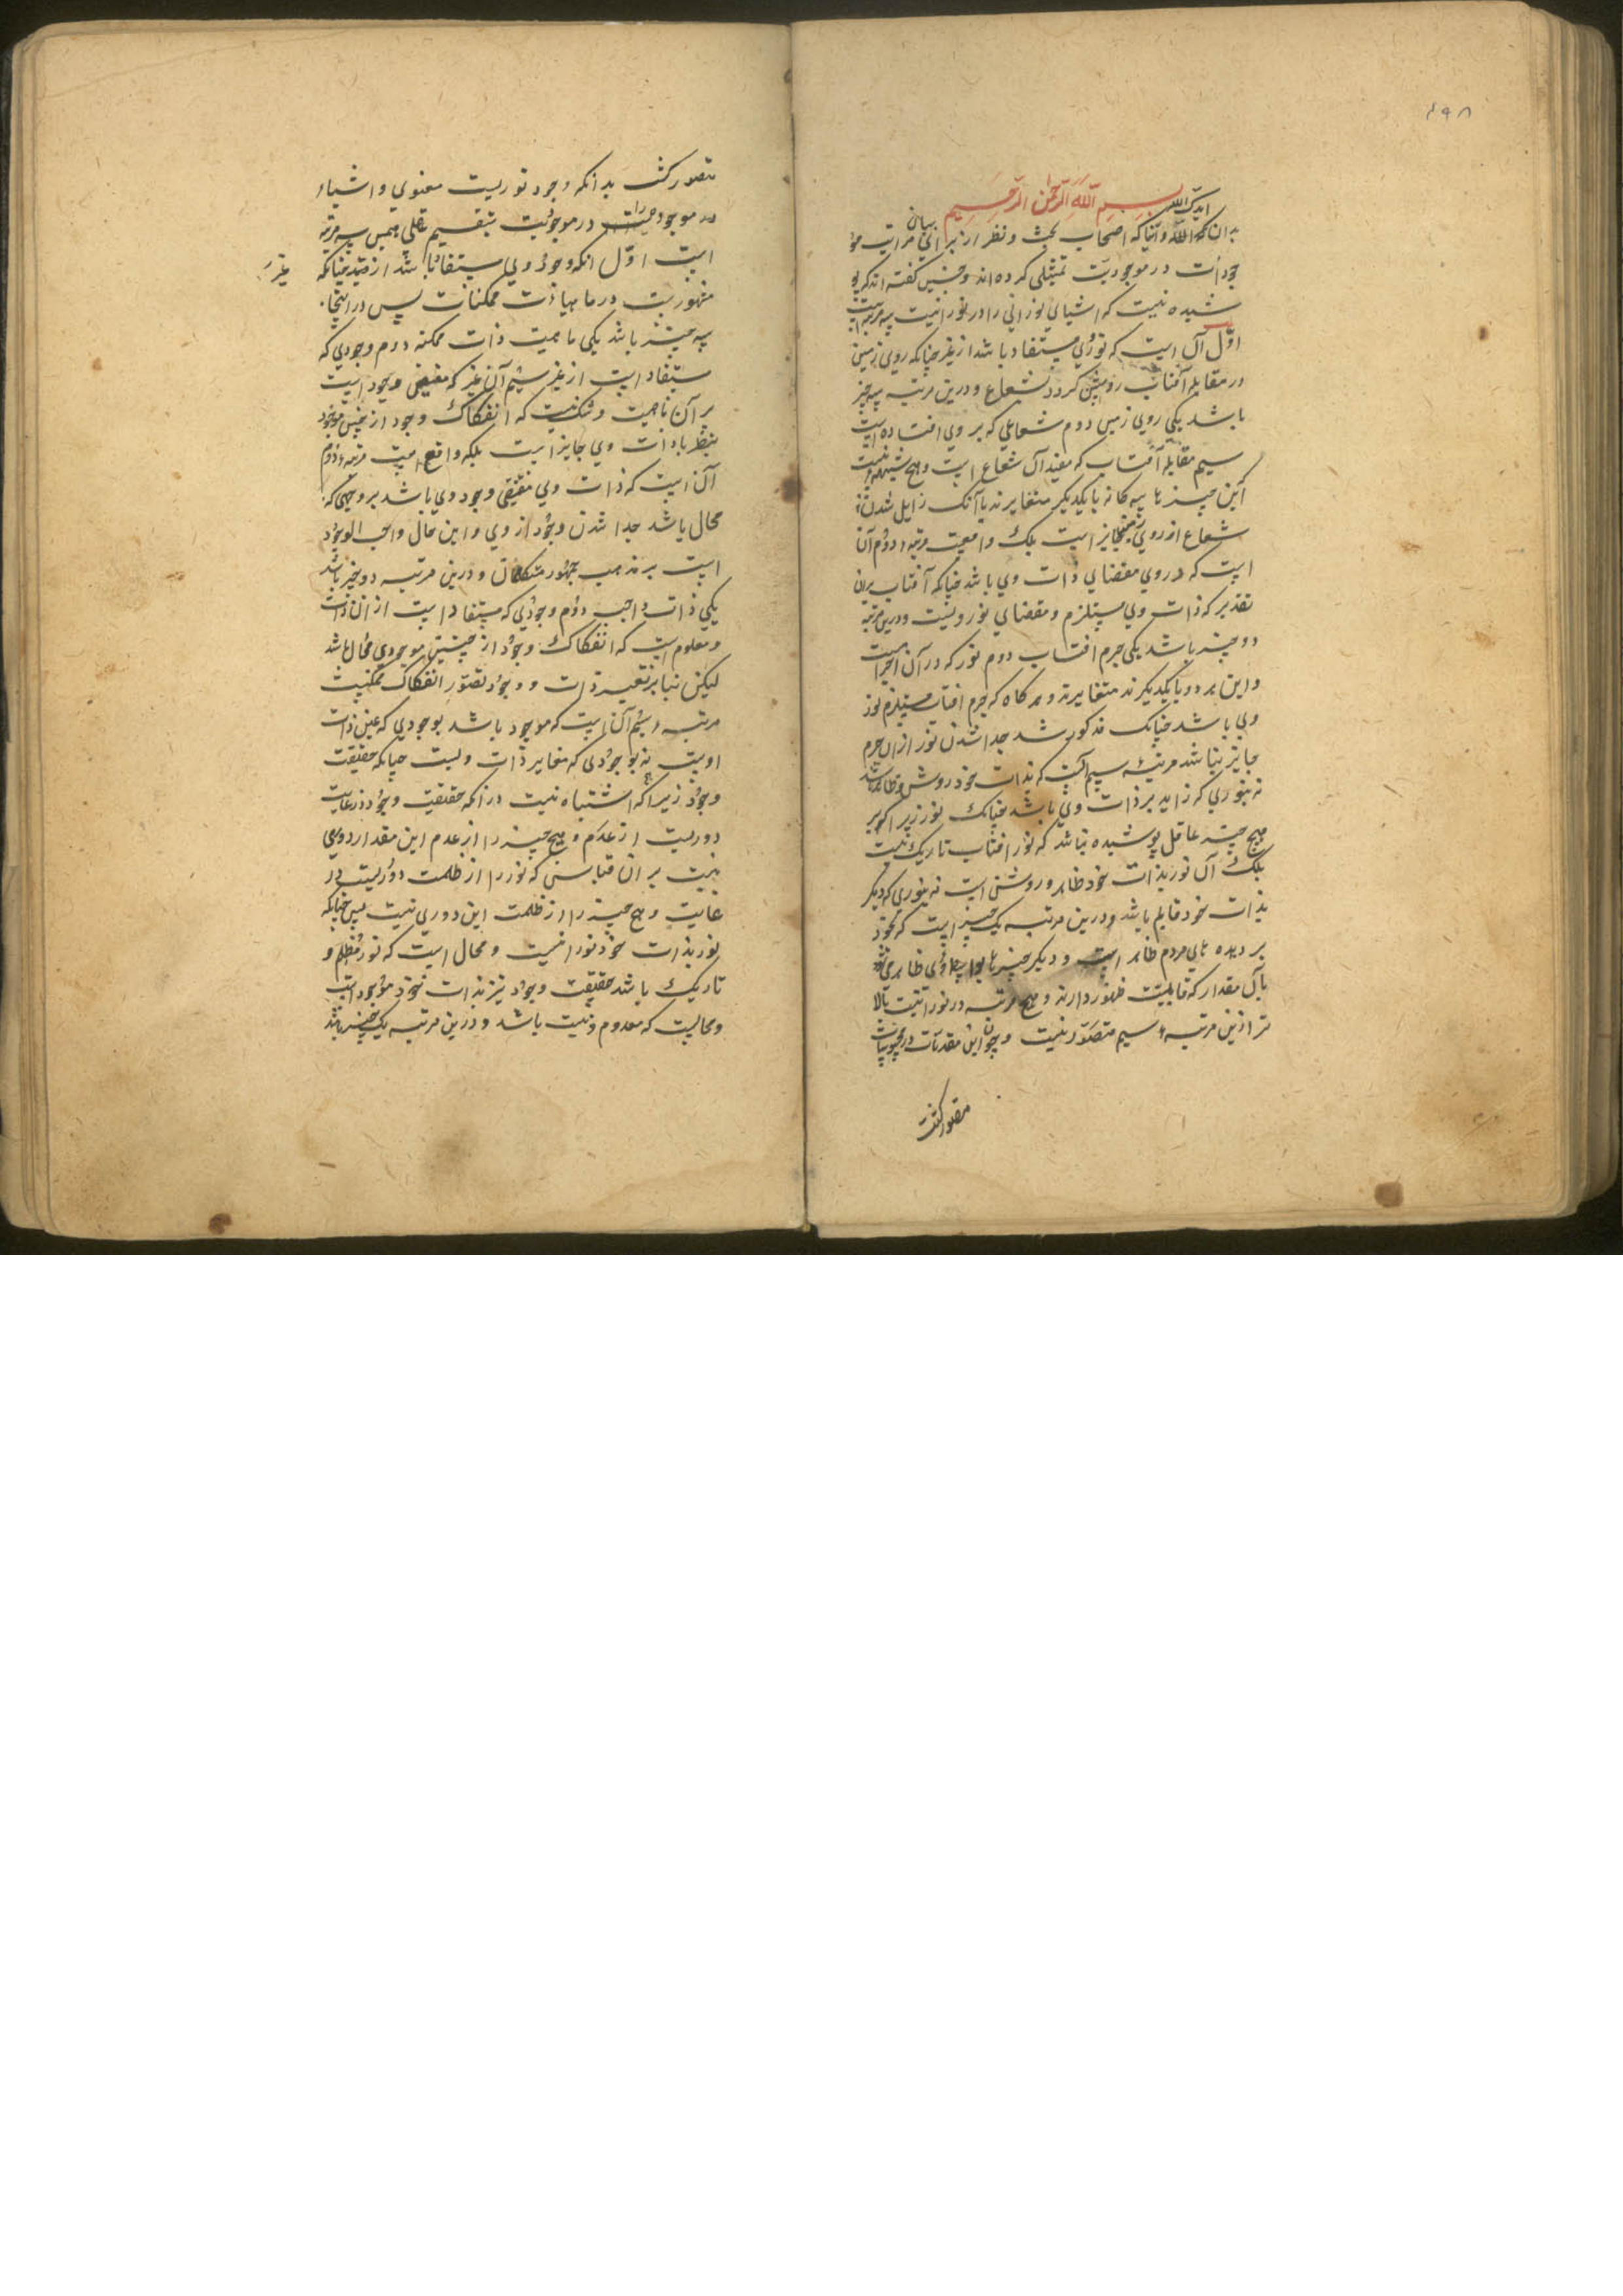 ۴۹۸
بسم الله الرحمن الرحیم
بدان ایدک الله وایانا که اصحاب بحث و نظر از برای بیان مراتب مو
جودات در موجودیت تمثیلی کرده اند و چنین گفته اند که پو
شیده نیست که اشیای نورانی را در نورانیت سه مرتبه است
اول آن است که نوری مستفاد باشد از غیر چنانکه روی زمین
در مقابله آفتاب روشن گردد بشعاع و درین مرتبه سه چیز
باشد یکی روی زمین دوم شعاعی که بر وی افتاده است
سیم مقابله آفتاب که مفید آن شعاع است و هیچ شبهه نیست
این چیزها سه کانه با یکدیگر متغایرند با آنک زایل شدن
شعاع از روی زمین جایز است بلک واقعیت مرتبه دوم آن
است که در وی مقتضای ذات وی باشد چنانکه آفتاب بران
تقدیر که ذات وی مستلزم و مقتضای نور ویست و درین مرتبه
دو چیز باشد یکی جرم افتاب دوم نور که در آن اجراست
و این هر دو با یکدیگرند متغایرند و هر کاه که جرم افتاب مستلزم نور
وی باشد چنانک مذکور شد جدا شدن نور از ان جرم
جایز نباشد مرتبه سیم آنست که بذات خود روشن و ظاهر باشد
نه بنوری که زاید بر ذات وی باشد چنانک نور زیرا که بر
هیچ چیز عاقل پوشیده نباشد که نور افتاب تاریک نیست
بلک آن نور بذات خود ظاهر و روشن است نه بنوری که دیگر
بذات خود قایم باشد و درین مرتبه یک چیز است که بخود
بر دیده های مردم ظاهر است و دیگر چیزها بواسطه وی ظاهر می شود
بآن مقدار که قابلیت ظهور دارند و هیچ مرتبه در نورانیت بالا
تر ازین مرتبه سیم متصور نیست و چون این مقدمات در محسوسات
متصور گشت
متصور گشت بدانکه وجود نوریست معنوی و اشیاء
موجود را در موجودیت بتقسیم عقلی همین سه مرتبه
است اول انکه وجود وی مستفاد باشد از غیر چنانکه
مشهورست در ماهیات ممکنات پس در اینجا
سه چیز باشد یکی ماهیت ذات ممکنه دوم وجودی که
مستفاد است از غیر سیم آن غیر که مفیض وجود است
بر آن ماهیت و شک نیست که انفکاک وجود از چنین موجود
بنظر با ذات وی جایز است بلکه واقع است مرتبه دوم
آن است که ذات وی مقتضی وجود وی باشد بر وجهی که
محال باشد جدا شدن وجود از وی و این حال واجب الوجود
است بر مذهب جمهور متکلمان و درین مرتبه دو چیز باشد
یکی ذات واجب دوم وجودی که مستفاد است از ان ذات
و معلوم است که انفکاک وجود از چنین موجودی محال باشد
لیکن بنا بر تغییر ذات و وجود تصور انفکاک ممکنست
مرتبه سیم آن است که موجود باشد بوجودی که عین ذات
اوست نه بوجودی که مغایر ذات ویست چنانکه حقیقت
وجود زیرا که اشتباه نیست در انکه حقیقت وجود در غایت
دوریست از عدم و هیچ چیز را از عدم این مقدار دوری
نیست بر ان قیاس که نور را از ظلمت دوریست در
غایت و هیچ چیز را از ظلمت این دوری نیست پس چنانکه
نور بذات خود نورانیست و محال است که نور مظلم و
تاریک باشد حقیقت وجود نیز بذات خود موجود است
و محالست که معدوم و نیست باشد و درین مرتبه یک چیز باشد